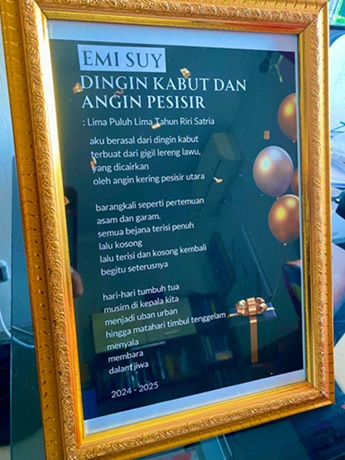 EMI SUY
DINGIN KABUT DAN
ANGIN PESISIR
: Lima Puluh Lima Tahun Riri Satria
aku berasal dari dingin kabut
terbuat dari gigil lereng lawu,
yang dicairkan
oleh angin kering pesisir utara
barangkali seperti pertemuan
asam dan garam.
semua bejana terisi penuh
lalu kosong
lalu terisi dan kosong kembali
begitu seterusnya
hari-hari tumbuh tua
musim di kepala kita
menjadi uban urban
hingga matahari timbul tenggelam
menyala
membara
dalam jiwa
2024 - 2025